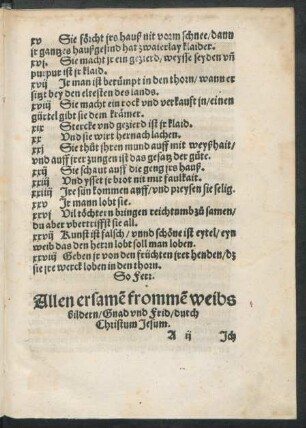 xv Sie förcht jrs hauß nit vorm schnee/dann
jr gantzes haußgesind hat zwaierlay klaider.
xvj. Sie macht jr ein gezierd/weysse seyden vñ
purpur ist jr klaid.
xvij Jr man ist berümpt in den thorn/wann er
sitzt bey den eltesten des lands.
xviij Sie macht ein rock vnd verkauft jn/einen
gürtel gibt sie dem krämer.
xix Stercke vnd gezierd ist jr klaid.
xx Vnd sie wirt hernach lachen.
xxj Sie thüt jhren mund auff mit weyßhait/
vnd auff jrer zungen ist das gesatz der güte.
xxij Sie schaut auff die geng jrs hauß.
xxiij Vnd ysset jr brot nit mit faulkait.
xxiiij Jre sün kommen auff/vnd preysen sie selig.
xxv Jr mann lobt sie.
xxvj Vil töchtern bringen reichtumb zů samen/
du aber vbertriffst sie all.
xxvij Kunst ist falsch/vnnd schöne ist eytel/eyn
weib das den herrn lobt soll man loben.
xxviij Geben jr von den früchten jrer henden/dz
sie jre werck loben in den thorn.
So Ferr.
Allen ersamē frommē weibs
bildern/Gnad vnd Frid/durch
Christum Jesum.
A ij Jch